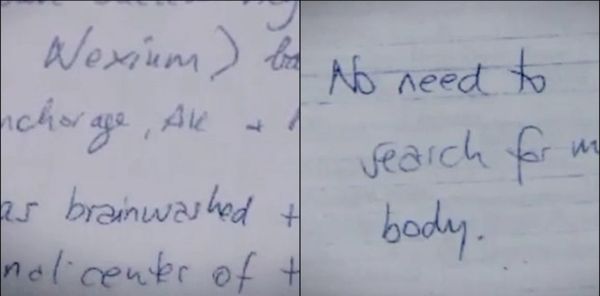 Nexium)
nchorage, AK +
as brainwashed +
nal center of t
No need to
search for m
body.